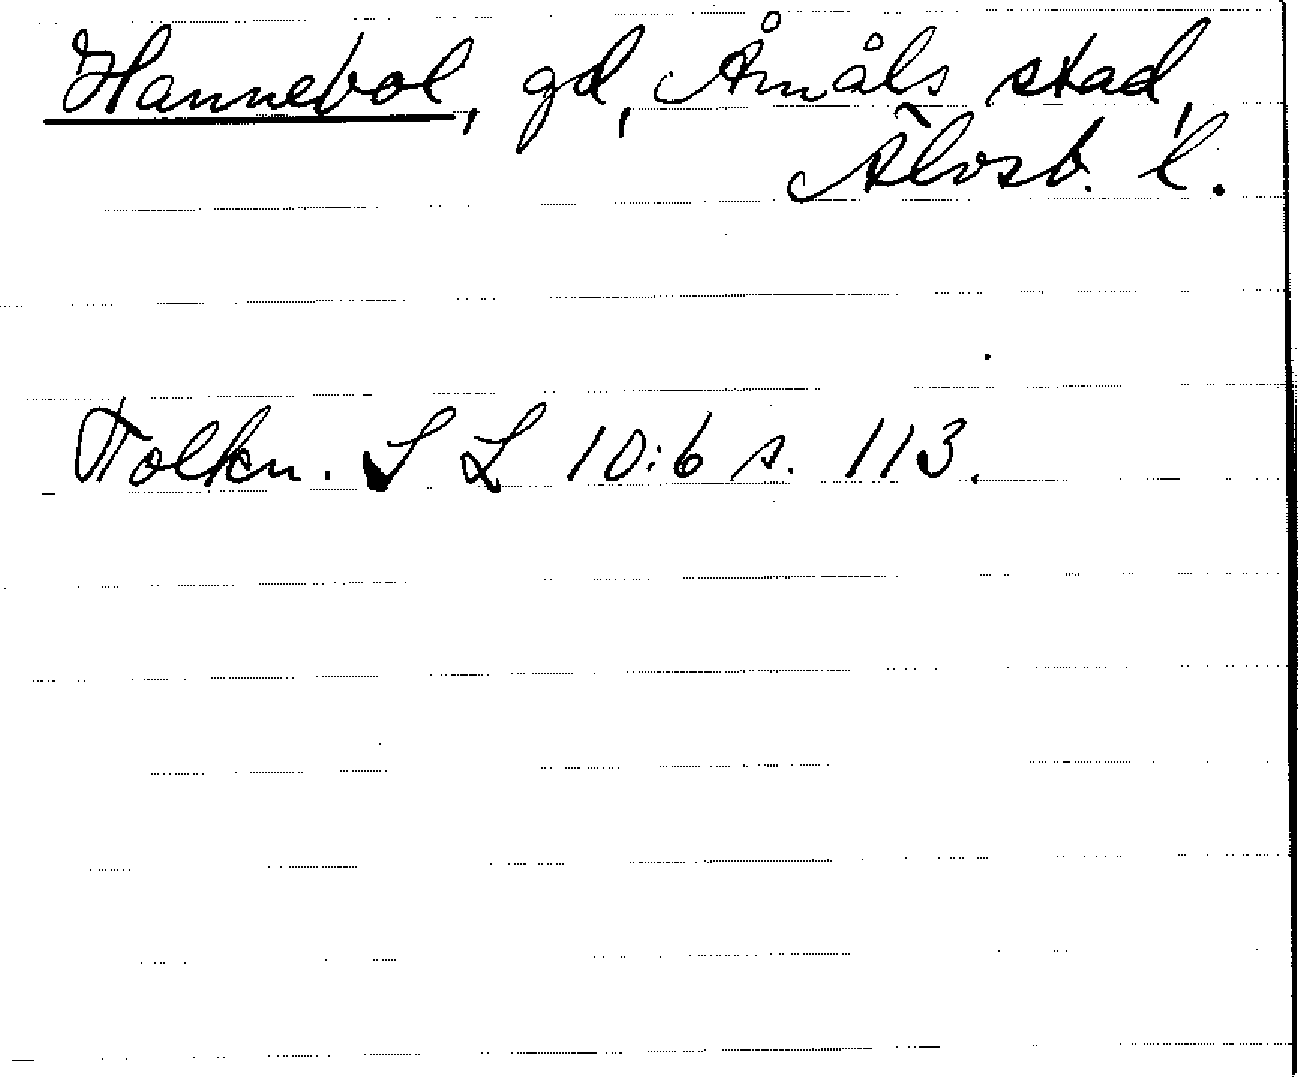 Hannebol, gd, Åmåls stad,
Älvsb. l.
Tolkn. SL 10:6 s. 113.